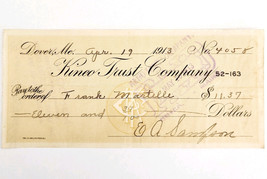 Dover, Me. Apr. 19 1913 No. 4058
Kineo Trust Company 52-163
Pay to the order of Frank Martelle $11.37
Eleven and Dollars
E A Sampson